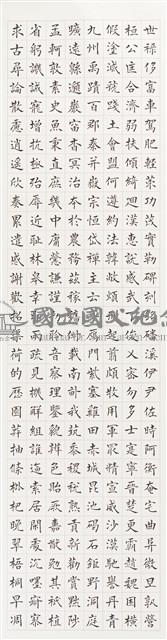 世祿侈富車駕肥輕策功茂實勒碑刻銘磻溪伊尹佐時阿衡奄宅曲阜微旦孰營
桓公匡合濟弱扶傾綺迴漢惠說感武丁俊乂密勿多士寔寧晉楚更霸趙魏困橫
假塗滅虢踐土會盟何遵約法韓弊煩刑起翦頗牧用軍最精宣威沙漠馳譽丹青
九州禹蹟百郡秦并嶽宗恒岱禪主云亭雁門紫塞雞田赤城昆池碣石鉅野洞庭
曠遠緜邈巖岫杳冥治本於農務茲稼穡俶載南畝我藝黍稷稅熟貢新勸賞黜陟
孟軻敦素史魚秉直庶幾中庸勞謙謹敕聆音察理鑒貌辨色貽厥嘉猷勉其祗植
省躬譏誡寵增抗極殆辱近恥林皋幸即兩疏見機解組誰逼索居閒處沉默寂寥
求古尋論散慮逍遙欣奏累遣慼謝歡招渠荷的歷園莽抽條枇杷晚翠梧桐早凋